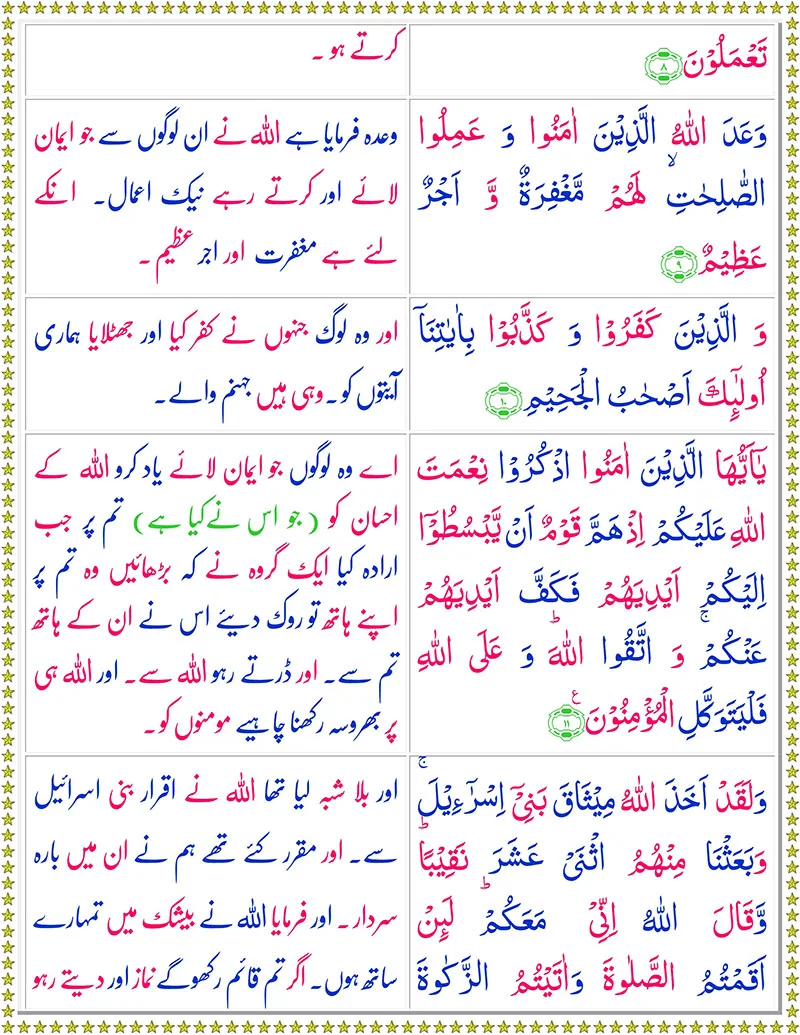 تَعۡمَلُوۡنَ ۸
کرتے ہو ۔
وَعَدَ اللّٰهُ الَّذِيۡنَ اٰمَنُوا وَ عَمِلُوا
الصّٰلِحٰتِ ۙ لَهُمۡ مَّغۡفِرَةٌ وَّ اَجۡرٌ
عَظِيۡمٌ ۹
وعدہ فرمایا ہے اللہ نے ان لوگوں سے جو ایمان
لائے اور کرتے رہے نیک اعمال۔ انکے
لئے ہے مغفرت اور اجر عظیم ۔
وَ الَّذِيۡنَ كَفَرُوۡا وَ كَذَّبُوۡا بِاٰيٰتِنَاۤ
اُولٰٓئِكَ اَصۡحٰبُ الۡجَحِيۡمِ ۱۰
اور وہ لوگ جنہوں نے کفر کیا اور جھٹلایا ہماری
آیتوں کو ۔ وہی ہیں جہنم والے۔
يٰۤاَيُّهَا الَّذِيۡنَ اٰمَنُوا اذۡكُرُوۡا نِعۡمَتَ
اللّٰهِ عَلَيۡكُمۡ اِذۡهَمَّ قَوۡمٌ اَنۡ يَّبۡسُطُوۡۤا
اِلَيۡكُمۡ اَيۡدِيَهُمۡ فَكَفَّ اَيۡدِيَهُمۡ
عَنۡكُمۡ ۚ وَ اتَّقُوا اللّٰهَ ؕ وَ عَلَى اللّٰهِ
فَلۡيَتَوَكَّلِ الۡمُؤۡمِنُوۡنَ ۱۱ ع
اے وہ لوگوں جو ایمان لائے یاد کرو اللہ کے
احسان کو (جو اس نے کیا ہے) تم پر جب
ارادہ کیا ایک گروہ نے کہ بڑھائیں وہ تم پر
اپنے ہاتھ تو روک دیئے اس نے ان کے ہاتھ
تم سے۔ اور ڈرتے رہو اللہ سے۔ اور اللہ ہی
پر بھروسہ رکھنا چاہیے مومنوں کو۔
وَلَقَدۡ اَخَذَ اللّٰهُ مِيۡثَاقَ بَنِىۡۤ اِسۡرَآءِيۡلَ ۚ
وَبَعَثۡنَا مِنۡهُمُ اثۡنَىۡ عَشَرَ نَقِيۡبًا ؕ
وَّقَالَ اللّٰهُ اِنِّىۡ مَعَكُمۡ ؕ لَٮِٕنۡ
اَقَمۡتُمُ الصَّلٰوةَ وَاٰتَيۡتُمُ الزَّكٰوةَ
اور بلا شبہ لیا تھا اللہ نے اقرار بنی اسرائیل
سے۔ اور مقرر کئے تھے ہم نے ان میں بارہ
سردار۔ اور فرمایا اللہ نے بیشک میں تمہارے
ساتھ ہوں۔ اگر تم قائم رکھو گے نماز اور دیتے رہو